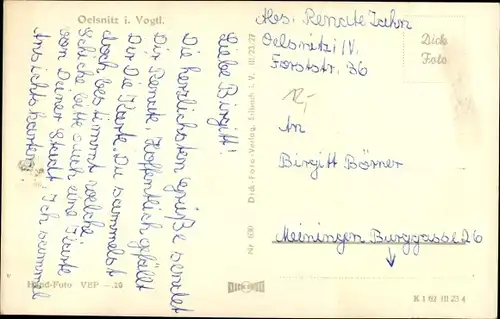 Oelsnitz i. Vogtl.
Liebe Birgitt!
Die herzlichsten Grüße sendet
Dir Renate. Hoffentlich gefällt
Dir die Karte. Du sammelst
doch bestimmt welche.
Schicke bitte auch eine Karte
von Deiner Stadt, ich sammel
Ansichtskarten.
Hand-Foto VEP —.20
Nr. 830 Dick-Foto-Verlag, Erlbach i. V. III 23 27
DICK FOTO
Abs. Renate Jahn
Oelsnitz i/V.
Forststr. 36
Dick
Foto
12,-
An
Birgitt Börner
Meiningen Burggasse 26
K 1 63 III 23 4